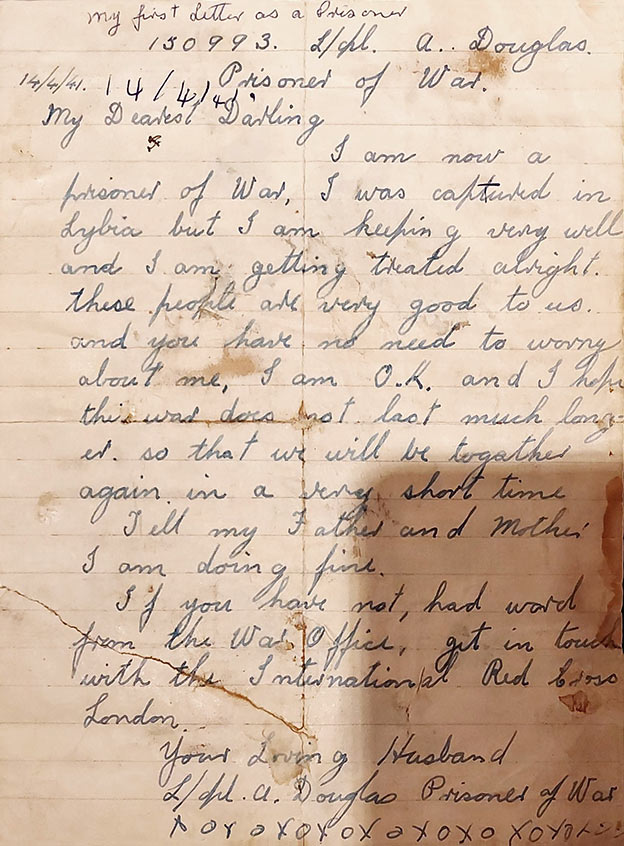 My first Letter as a Prisoner
150993. L/cpl. A.. Douglas.
14/4/41. 14/4/41. Prisoner of War.
My Dearest Darling
I am now a
prisoner of War, I was captured in
Lybia but I am keeping very well
and I am getting treated alright.
these people are very good to us.
and you have no need to worry
about me, I am O.K. and I hope
this war does not last much long=
er. so that we will be together
again in a very short time
Tell my Father and Mother
I am doing fine.
If you have not, had word
from the War Office, get in touch
with the International Red Cross
London
Your Loving Husband
L/cpl. A. Douglas Prisoner of War
X O X O X O X O X O X O X O X O X O X